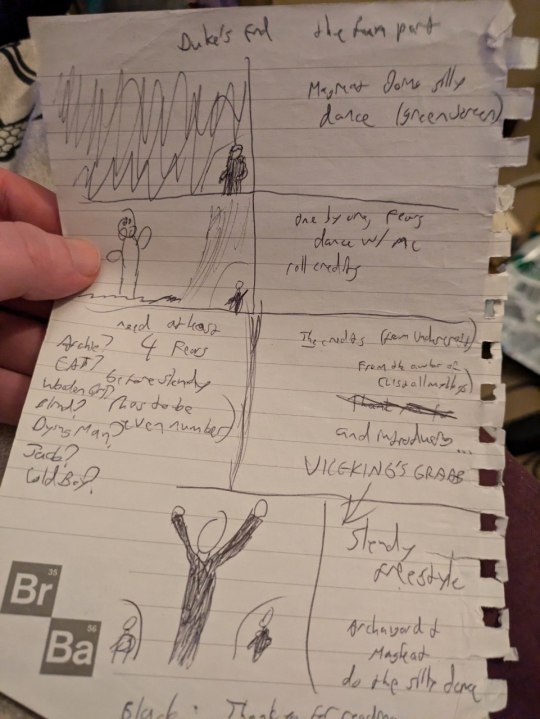 Duke's End the fun part
MagHeat doing silly
dance (greenscreen)
one by one, Fears
dance w/ AC
roll credits
need at least
4 Fears
before slendy
(has to be
even number)
Archie?
EAT?
Wooden Girl?
Blind?
Dying Man?
Jack?
Cold Boy?
The credits (from Undercroft)
From the author of
and introducing...
VICEKING'S GRAAB
Slendy
freestyle
Archangel &
MagHeat
do the silly dance
Br
35
Ba
56
Black: Thank you for reading